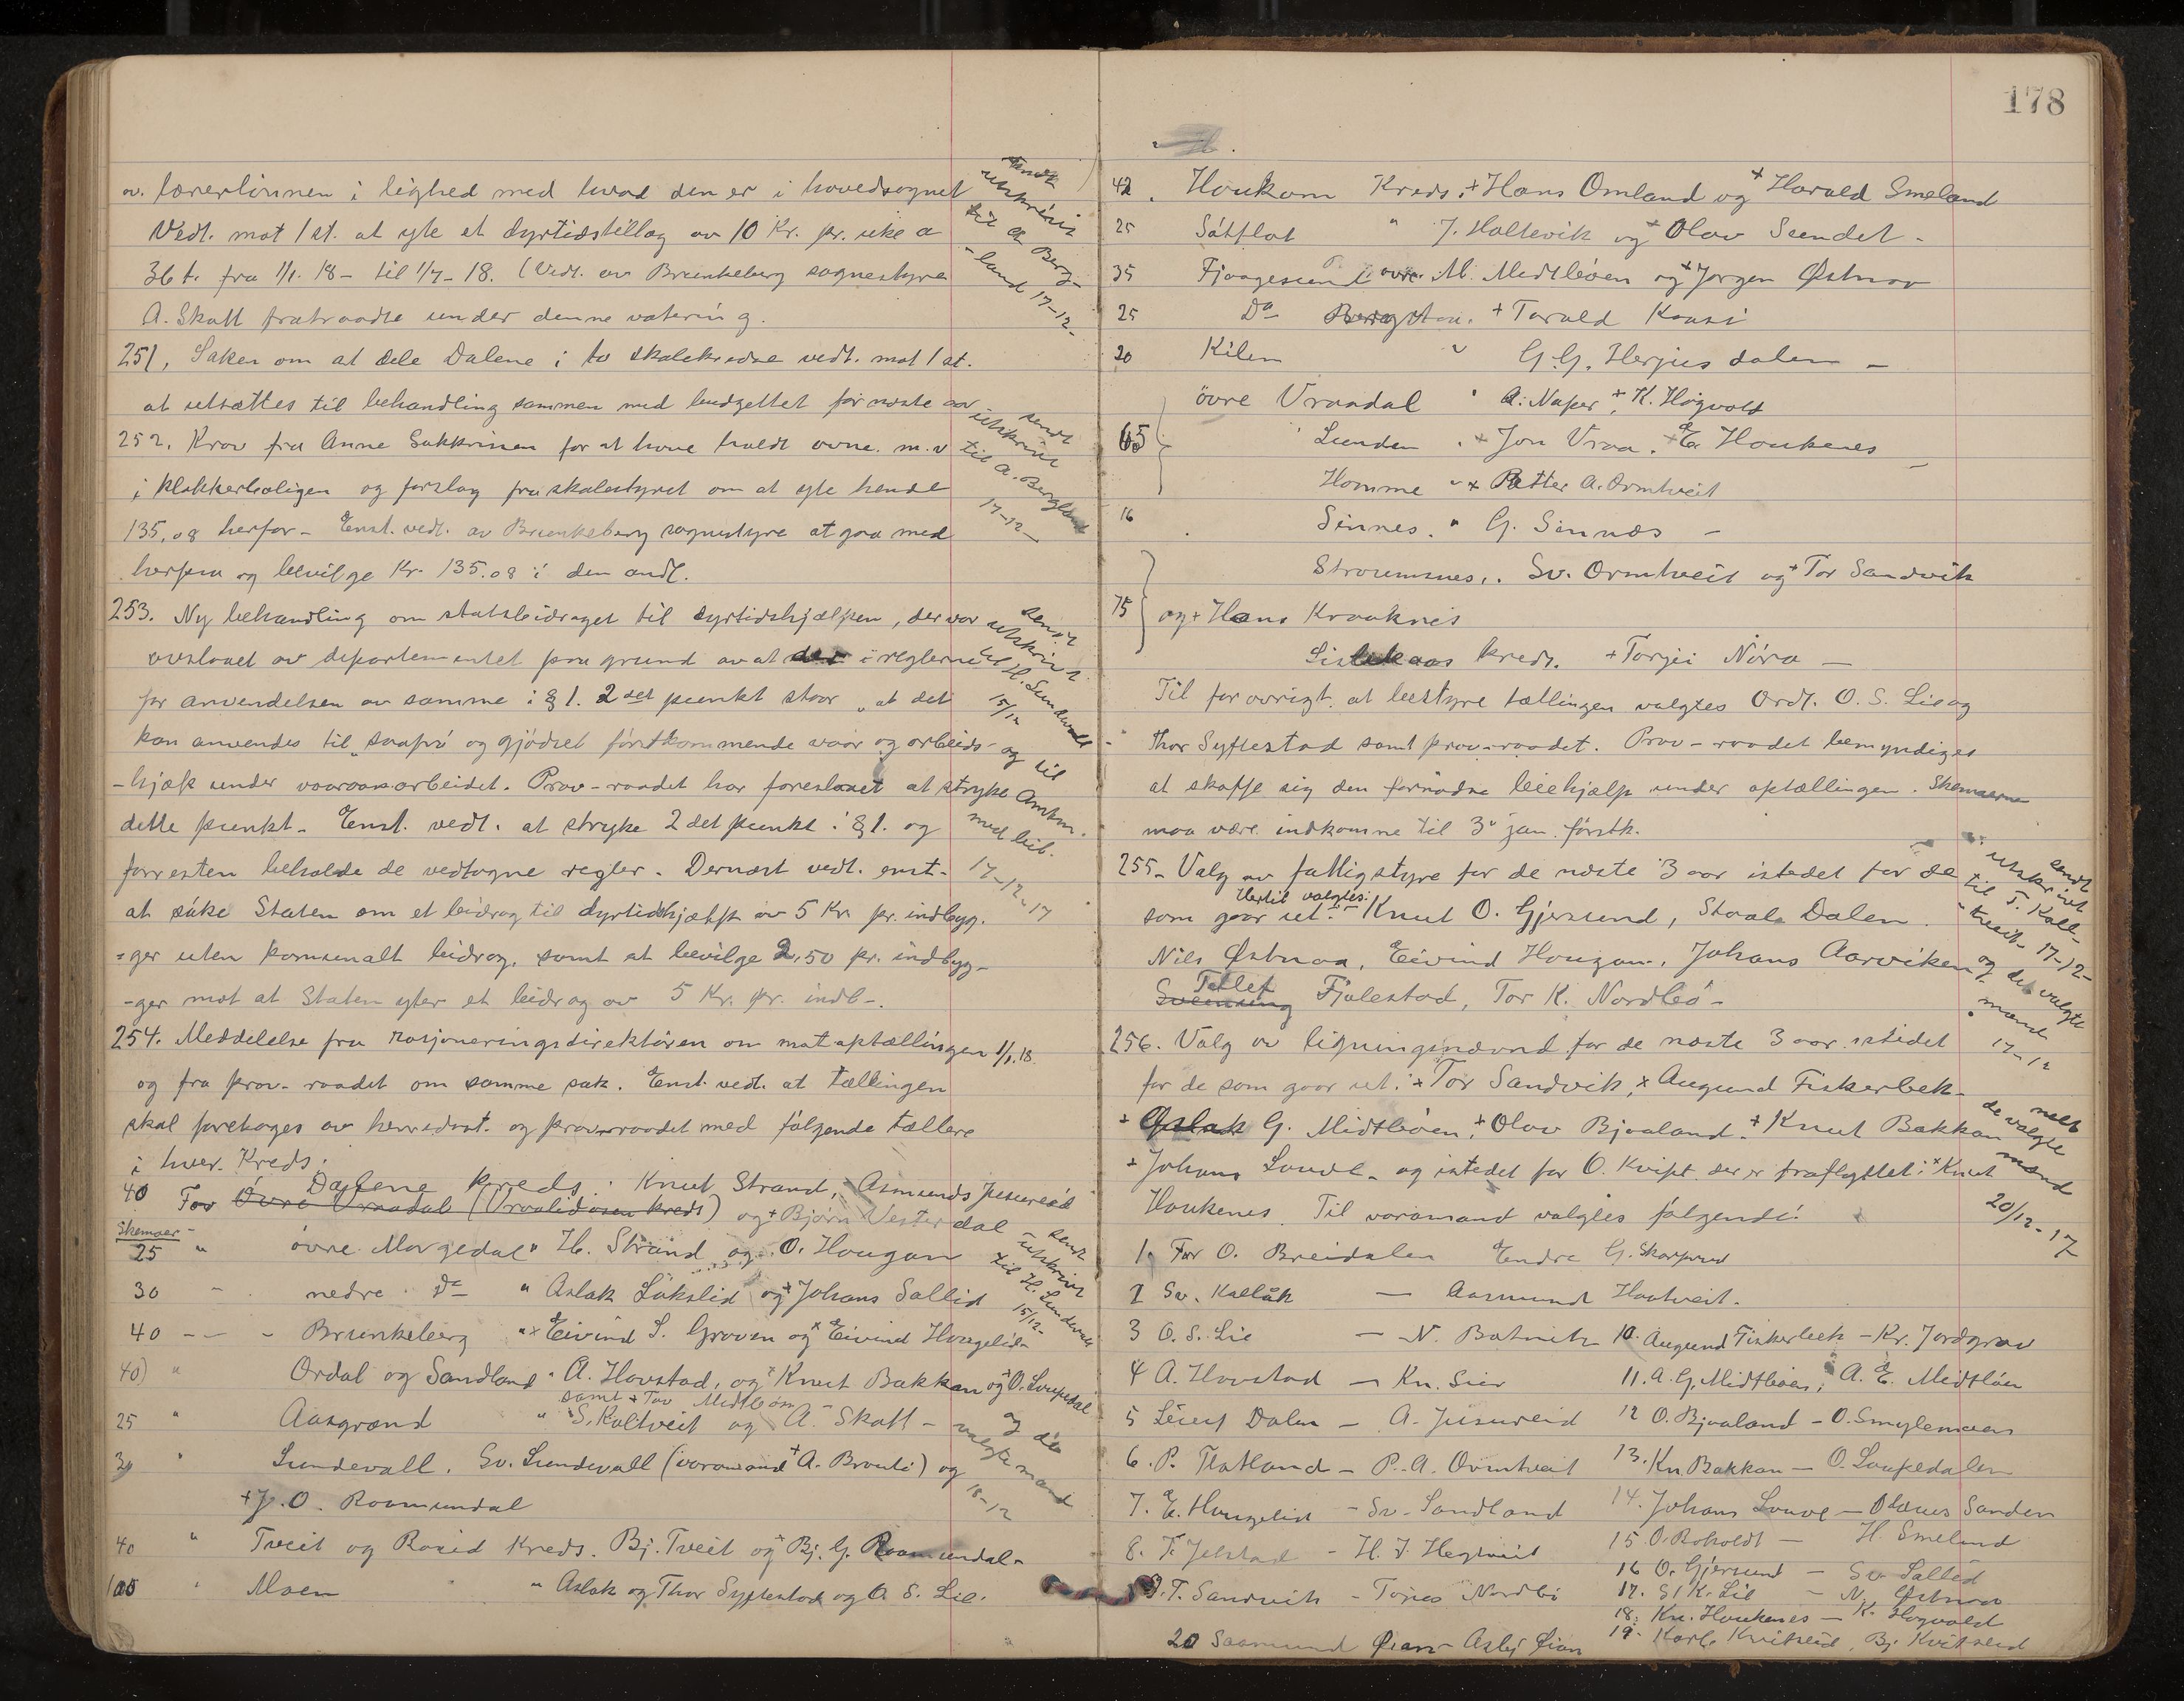 av. lærerinnen i lighed med hvad den er i hovedsognet
Vedt. mot 1 st. at yte et dyrtidstillæg av 10 Kr. pr. uke a
36 t. fra 1/1. 18 - til 1/7 - 18. (Vedt. av Brunkeberg sognestyre
A. Skatt fratraadte under denne votering.
sendt utskrift til A. Berg-
-land 17-12-
251, Saken om at dele Dalene i to skolekredse vedt. mot 1 st.
at utsættes til behandling sammen med budgettet for næste aar
252. Krav fra Anne Sukkrinen for at have holdt ovne. m. v
i klokkerboligen og forslag fra skolestyret om at yte hende
135,08 herfor - Enst. vedt. av Brunkeberg sognestyre at gaa med
herpaa og bevilge Kr. 135.08 i den anl.
sendt utskrift til A. Bergland
17-12-
253. Ny behandling om statsbidraget til dyrtidshjælpen, der var
avslaaet av departementet paa grund av at det i reglerne
for anvendelsen av samme i § 1. 2det punkt staar "at det
kan anvendes til "saafrö og gjödsel förstkommende vaar og arbeids-
-hjælp under vaaraonarbeidet. Prov-raadet har foreslaaet at stryke
dette punkt - Enst. vedt. at stryke 2det punkt i § 1. og
forresten beholde de vedtagne regler. Dernæst vedt. enst.
at söke Staten om et bidrag til dyrtidshjælp av 5 Kr. pr. indbyg.
-ger uten komunalt bidrag, samt at bevilge 2,50 pr. indbyg-
-ger mot at Staten yter et bidrag av 5 Kr. pr. indb-.
sendt utskrift til H. Sundevall
15/12
og til Amtm.
med bil.
17-12-17
254. Meddelelse fra rasjoneringsdirektören om matoptællingen 1/1. 18.
og fra prov-raadet om samme sak. Enst. vedt. at tællingen
skal foretages av herredsst. og prov-raadet med fölgende tællere
i hver. Kreds:
Dalene kreds: Knut Strand, Asmund Jusureid
40 For Övre Vraadal (Vraalidosen kreds) og + Bjørn Vesterdal -
Skemaer
25 " övre Morgedal " H. Strand og O. Hougan
30 - nedre Do " Aslak Lökslid og + Johans Sallid
40 - Brunkeberg " x Eivind S. Groven og x Eivind Hougelid -
40) " Ordal og Sandland " A. Hovstad, og x Knut Bakkan og O. Loupedal
samt + Tov Midtböen
25 " Aasgrænd " S. Kaltveit og A. Skatt -
30 " Lundevall. Sv. Lundevall (varamand + A. Brouti) og
+ J. O. Raamundal
40 " Tveit og Roxid Kreds. Bj. Tveit og x Bj. G. Raamundal -
105 " Moen " Aslak og Thor Syftestad og O. S. Lie.
sendt utskrift til H. Sundevall
15/12 -
og de valgte mænd
18-12
178
42. Houkom Kreds. + Hans Omland og + Harald Smeland
25 Såtflot " J. Haltevik og + Olav Sundet -
35 Fjaagesund övre. M. Midtböen og + Jørgen Østnær
25 Do Bergstau. + Tarald Kaasi
20 Kilen " G. G. Herjusdalen -
övre Vraadal " A. Naper + K. Högvold
65 Lunden . + Jon Vraa. + E. Houkenes
Homme " + Petter A. Ormtveit
16 Sinnes. " G. Sinnes -
Straumsnes,. Sv. Ormtveit og + Tor Sandvik
75 og + Hans Kraaknis
kreds. + Torjei Nöra -
Til forövrigt at bestyre tællingen valgtes Ordf. O. S. Lie og
Thor Syftestad samt prov-raadet. Prov-raadet bemyndiges
at skaffe sig den fornödne leiehjælp under optællingen. Skemaerne
maa være indkomne til 3" jan. förstk.
255 - Valg av fattigstyre for de næste 3 aar istedet for de
Hertil valgtes:
som gaar ut. - Knut O. Gjersund, Staale Dalen.
Nils Østnaa, Eivind Hougan, Johans Aarviken,
Tallef
Sveinung Fjalestad, Tor K. Nordbö -
sendt utskrift til T. Kall-
-tveit - 17-12-
og de valgte mænd
17-12
256. Valg av ligningsnævnd for de næste 3 aar istedet
for de som gaar ut. + Tor Sandvik, x Augund Fiskerbek -
+ Aslak G. Midtböen, + Olav Bjaaland. + Knut Bakkan
+ Johans Louve - og istedet for O. Kvipt der er fraflyttet: x Knut
Houkenes. Til varamænd valgtes fölgende:
melt de valgte mænd
20/12-17
1. For O. Breidalen Endre G. Skarprud
2 Sv. Kallåk - Aasmund Haatveit.
3 O. S. Lie - N. Batnitn
4 A. Hovstad - Kn. Sier
5 Leiuf Dalen - A. Jusureid
6. P. Flatland - P. A. Ormtveit
7. E. Hougelid - Sv. Sandland
8. T. Jelstad - H. J. Hegtveit
9. T. Sandvik - Tönes Nordbö
10. Augund Fiskerbek - Kr. Jordgrav
11. A. G. Midtböen, A. E. Midtböen
12 O. Bjaaland - O. Smylemoen
13. Kn. Bakkan - O. Loupedalen
14. Johans Louve - Olaus Sanden
15 O. Roholdt - H. Smeland
16 O. Gjersund - Sv. Sallid
17. Sl K. Lie - N. Østnaa
18. Kn. Houkenes - K. Högvold
19. Karl Kvitseid, Bj. Kvitseid
20 Saamund Øian - Asbj Øian